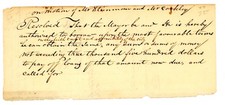 on Motion of Mr
Resolved That the Mayor be and He is hereby
authorised to borrow upon the most favourable terms
he can obtain the same, any sum or sums of money
not exceeding five thousand five hundred dollars
to pay off loans of that amount now due, and
called for